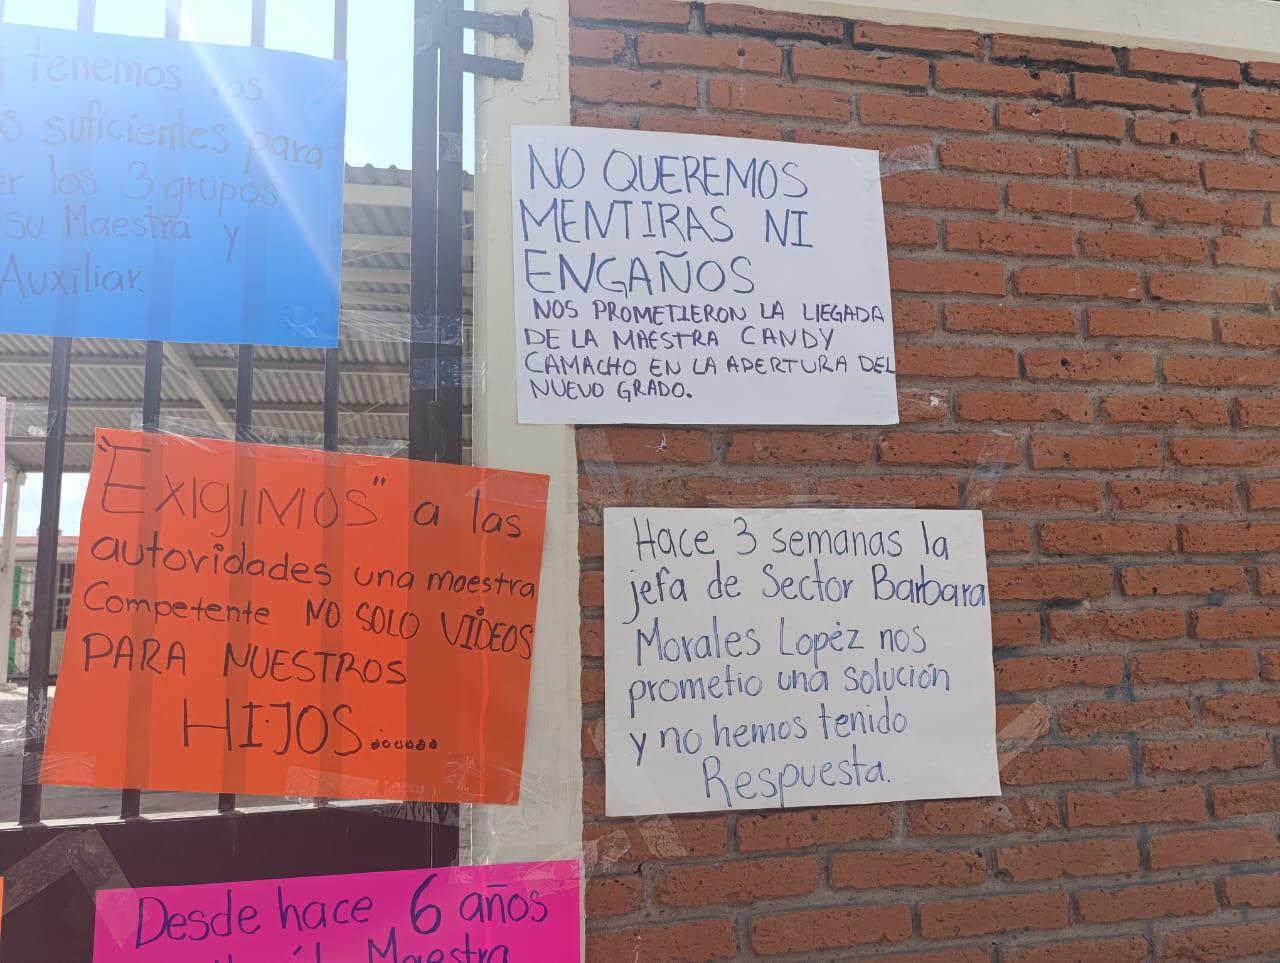 tenemos los
suficientes para
los 3 grupos
su Maestra y
Auxiliar.
NO QUEREMOS
MENTIRAS NI
ENGAÑOS
NOS PROMETIERON LA LLEGADA
DE LA MAESTRA CANDY
CAMACHO EN LA APERTURA DEL
NUEVO GRADO.
"EXIGIMOS" a las
autoridades una maestra
Competente NO SOLO VIDEOS
PARA NUESTROS
HIJOS.......
Hace 3 semanas la
jefa de Sector Barbara
Morales Lopéz nos
prometio una solución
y no hemos tenido
Respuesta.
Desde hace 6 años
Maestra